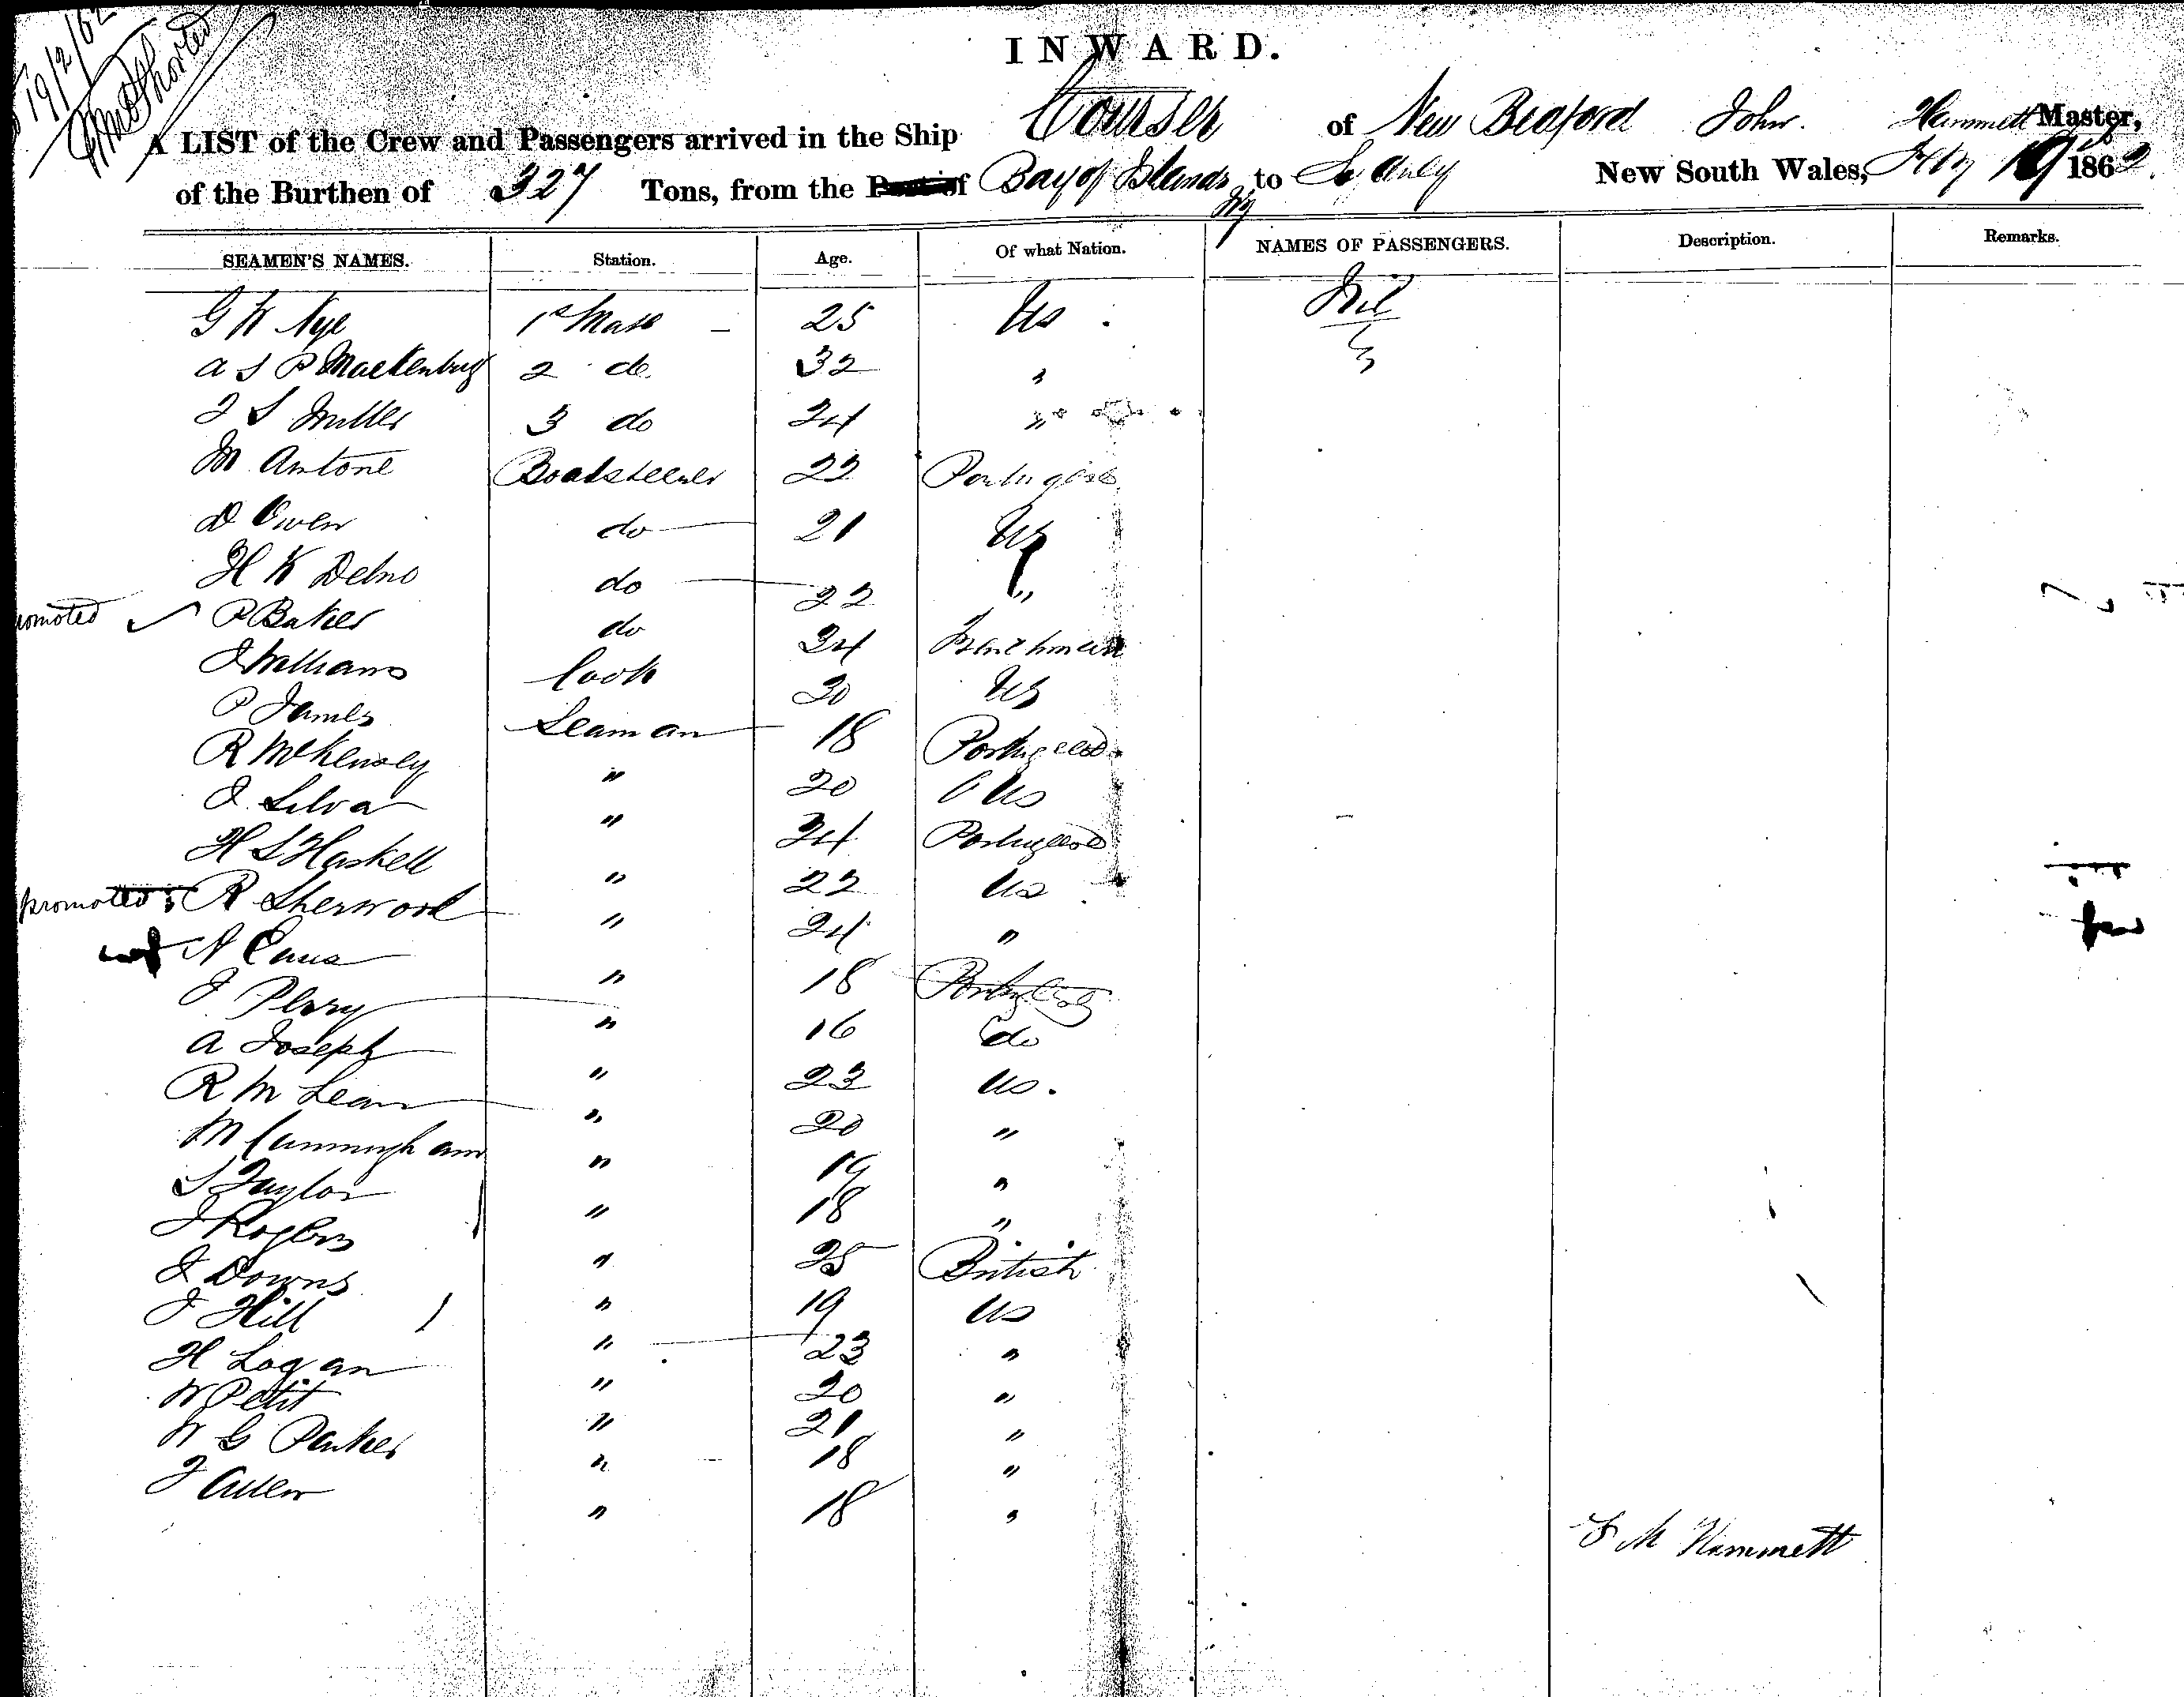 19/2/62
INWARD.
A LIST of the Crew and Passengers arrived in the Ship Courser of New Bedford John Hammett Master,
of the Burthen of 327 Tons, from the Port of Bay of Islands to Sydney New South Wales, Feby 19 1862.
SEAMEN'S NAMES. Station. Age. Of what Nation. NAMES OF PASSENGERS. Description. Remarks.
G W Nye 1st Mate 25 Us Nil
A S P 2 do 32 "
J S Miller 3 do 24 "
M Antone Boatsteerer 22
D Owen do 21 Us
H K Delno do 22 "
omoted P Baker do 34
J Williams Cook 30 Us
P James Seaman 18
R " 20 Us
J. Silva " 24
H S Haskell " 22 Us
promoted R Sherwood " 24 "
N " 18
J Perry " 16 do
A Joseph " 23 Us.
R M Lean " 20 "
M Cunningham " 19 "
S Taylor " 18 "
J Rogers " 25 British
J Downs " 19 Us
J Hill " 23 "
H Logan " 20 "
W Petit " 21 "
W G Parker " 18 "
J Allen " 18 "
J M Hammett